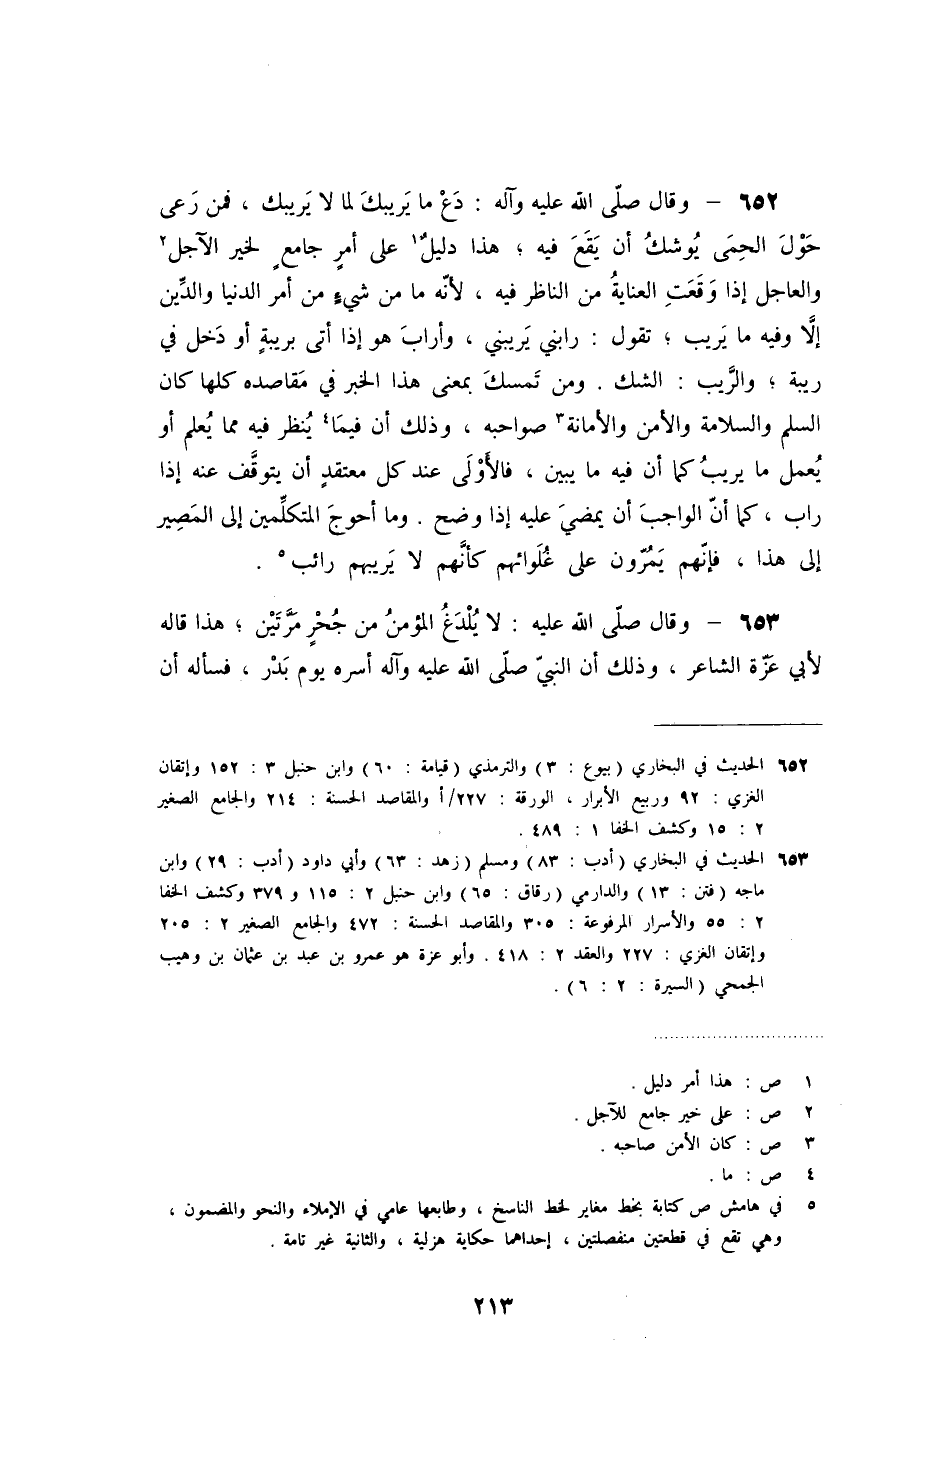 ٦٥٢ – وقال صلّى الله عليه وآله : دَعْ ما يَريبكَ لما لا يَريبك ، فمن رَعى
حَوْلَ الحِمَى يُوشكُ أن يَقَعَ فيه ؛ هذا دليلٌ١ على أمرٍ جامعٍ لخير الآجل٢
والعاجل إذا وَقَعَتِ العنايةُ من الناظر فيه ، لأنّه ما من شيءٍ من أمر الدنيا والدِّين
إلَّا وفيه ما يَريب ؛ تقول : رابني يَريبني ، وأرابَ هو إذا أتى بريبةٍ أو دَخل في
ريبة ؛ والرَّيب : الشك . ومن تَمسكَ بمعنى هذا الخبر في مَقاصده كلها كان
السلم والسلامة والأمن والأمانة٣ صواحبه ، وذلك أن فيمَا٤ يُنظر فيه مما يُعلم أو
يُعمل ما يريبُ كما أن فيه ما يبين ، فالأَوْلَى عند كل معتقدٍ أن يتوقَّف عنه إذا
راب ، كما أنّ الواجبَ أن يمضيَ عليه إذا وضح . وما أحوجَ المتكلِّمين إلى المَصِير
إلى هذا ، فإنّهم يَمُرّون على غُلَوائهم كأنَّهم لا يَريبهم رائب٥ .
٦٥٣ – وقال صلّى الله عليه : لا يُلْدَغُ المؤمنُ من جُحْرٍ مَرَّتَيْن ؛ هذا قاله
لأبي عَزّة الشاعر ، وذلك أن النبيّ صلّى الله عليه وآله أسره يوم بَدْر ، فسأله أن
٦٥٢ الحديث في البخاري (بيوع : ٣) والترمذي (قيامة : ٦٠) وابن حنبل ٣ : ١٥٢ وإتقان
الغزي : ٩٢ وربيع الأبرار ، الورقة : ٢٢٧/أ والمقاصد الحسنة : ٢١٤ والجامع الصغير
٢ : ١٥ وكشف الخفا ١ : ٤٨٩ .
٦٥٣ الحديث في البخاري (أدب : ٨٣) ومسلم (زهد : ٦٣) وأبي داود (أدب : ٢٩) وابن
ماجه (فتن : ١٣) والدارمي (رقاق : ٦٥) وابن حنبل ٢ : ١١٥ و ٣٧٩ وكشف الخفا
٢ : ٥٥ والأسرار المرفوعة : ٣٠٥ والمقاصد الحسنة : ٤٧٢ والجامع الصغير ٢ : ٢٠٥
وإتقان الغزي : ٢٢٧ والعقد ٢ : ٤١٨ . وأبو عزة هو عمرو بن عبد بن عثمان بن وهيب
الجمحي (السيرة : ٢ : ٦) .
١ ص : هذا أمر دليل .
٢ ص : على خير جامع للآجل .
٣ ص : كان الأمن صاحبه .
٤ ص : ما .
٥ في هامش ص كتابة بخط مغاير لخط الناسخ ، وطابعها عامي في الإملاء والنحو والمضمون ،
وهي تقع في قطعتين منفصلتين ، إحداهما حكاية هزلية ، والثانية غير تامة .
٢١٣